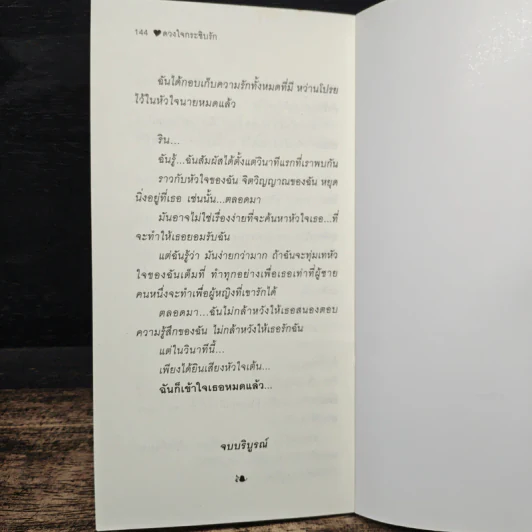 144 ♥ ดวงใจกระซิบรัก
ฉันได้กอบเก็บความรักทั้งหมดที่มี หว่านโปรย
ไว้ในหัวใจนายหมดแล้ว
ริน...
ฉันรู้...ฉันสัมผัสได้ตั้งแต่วินาทีแรกที่เราพบกัน
ราวกับหัวใจของฉัน จิตวิญญาณของฉัน หยุด
นิ่งอยู่ที่เธอ เช่นนั้น...ตลอดมา
มันอาจไม่ใช่เรื่องง่ายที่จะค้นหาหัวใจเธอ...ที่
จะทำให้เธอยอมรับฉัน
แต่ฉันรู้ว่า มันง่ายกว่ามาก ถ้าฉันจะทุ่มเทหัว
ใจของฉันเต็มที่ ทำทุกอย่างเพื่อเธอเท่าที่ผู้ชาย
คนหนึ่งจะทำเพื่อผู้หญิงที่เขารักได้
ตลอดมา...ฉันไม่กล้าหวังให้เธอสนองตอบ
ความรู้สึกของฉัน ไม่กล้าหวังให้เธอรักฉัน
แต่ในวินาทีนี้...
เพียงได้ยินเสียงหัวใจเต้น...
ฉันก็เข้าใจเธอหมดแล้ว...
จบบริบูรณ์